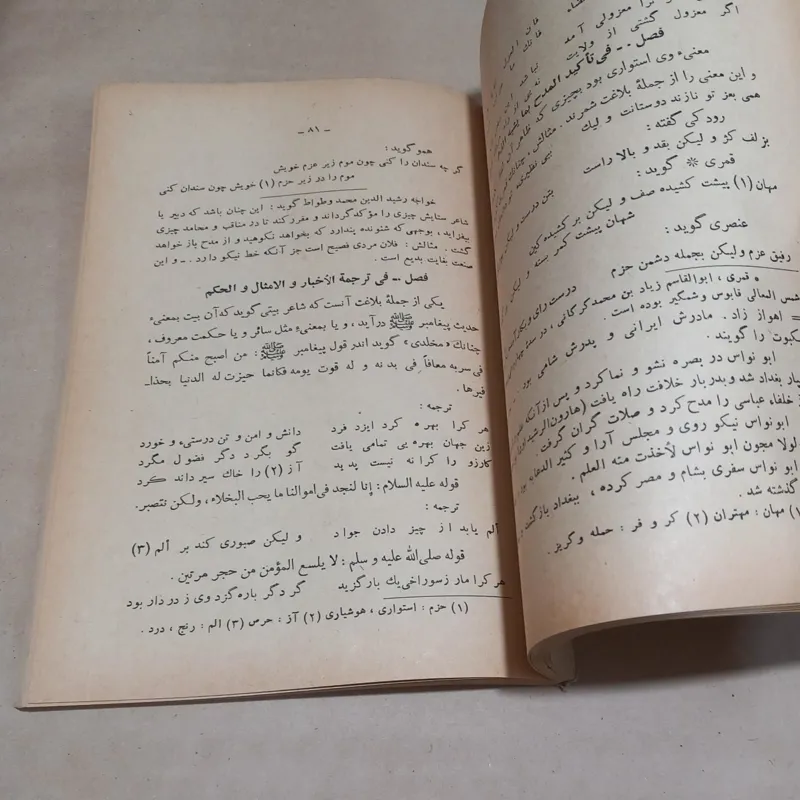 اگر معزول گشتی از ولایت
فصل - فی تأکید المدح بما یشبه
معنیء وی استواری بود بچیزی که ظاهر آن
و این معنی را از جملهٔ بلاغت شمرند. مثالش،
همی بعز تو نازند دوستانت و لیک
رودکی گفته:
بزلف کژ و لیکن بقد و بالا راست
قمری * گوید:
مهان (۱) بپشت کشیده صف و لیکن بر کشیده کین
شهان بپشت کمر بسته و لیکن
عنصری گوید:
رفیق عزم ولیکن بجمله دشمن حزم
* قمری، ابوالقاسم زیاد بن محمد گرگانی، در
شمس المعالی قابوس وشمگیر بوده است.
= اهواز زاد. مادرش ایرانی و پدرش شامی بود
ابو نواس در بصره نشو و نما کرد و پس از آنکه
بغداد شد و بدربار خلافت راه یافت (هارون الرشید
خلفاء عباسی را مدح کرد و صلات گران گرفت.
ابو نواس نیکو روی و مجلس آرا و کثیر
لولا مجون ابو نواس لأخذت منه العلم.
ابو نواس سفری بشام و مصر کرده، ببغداد بازگشت
گذشته شد.
(۱) مهان: مهتران (۲) کر و فر: حمله و گریز.
- ۸۱ -
همو گوید:
گر چه سندان را کنی چون موم زیر عزم خویش
موم را در زیر حزم (۱) خویش چون سندان کنی
خواجه رشید الدین محمد وطواط گوید: این چنان باشد که دبیر یا
شاعر ستایش چیزی را مؤکد گرداند و مقرر کند تا در مناقب و محامد چیزی
بیفزاید، بوجهی که شنونده پندارد که بخواهد نکوهید و از مدح باز خواهد
گشت. مثالش: فلان مردی فصیح است جز آنکه خط نیکو دارد. - و این
صنعت بغایت بدیع است.
فصل - فی ترجمة الأخبار و الامثال و الحکم
یکی از جملهٔ بلاغت آنست که شاعر بیتی گوید که آن بیت بمعنیء
حدیث پیغامبر ﷺ درآید، و یا بمعنیء مثل سائر و یا حکمت معروف،
چنانك «مخلدی» گوید اندر قول پیغامبر ﷺ: من اصبح منکم آمناً
فی سربه معافاً فی بدنه و له قوت یومه فکانما حیزت له الدنیا بحذا-
فیرها.
ترجمه:
هر کرا بهره کرد ایزد فرد دانش و امن و تن درستی و خورد
زین جهان بهره یی تمامی یافت گو بگرد دگر فضول مگرد
کارزو را کرانه نیست پدید آز (۲) را خاك سیر داند کرد
قوله علیه السلام: إنا لنجد فی اموالنا ما یحب البخلاء، ولکن نتصبر.
ترجمه:
ألم یابد از چیز دادن جواد و لیکن صبوری کند بر ألم (۳)
قوله صلی الله علیه و سلم: لا یلسع المؤمن من حجر مرتین.
هر کرا مار ز سوراخی یك بار گزید گر دگر باره گزد وی ز در دار بود
(۱) حزم: استواری، هوشیاری (۲) آز: حرص (۳) الم: رنج، درد.